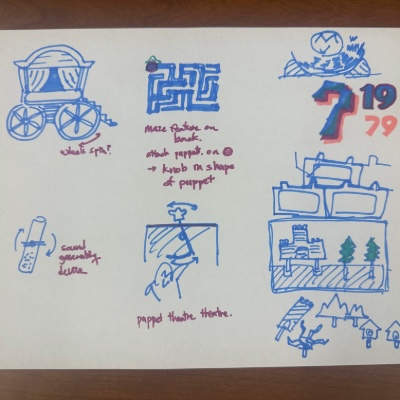 wheels spin?
maze feature on
back.
attach puppet on
→ knob in shape
of puppet
7 19
79
sound
generating
puppet theatre theatre.